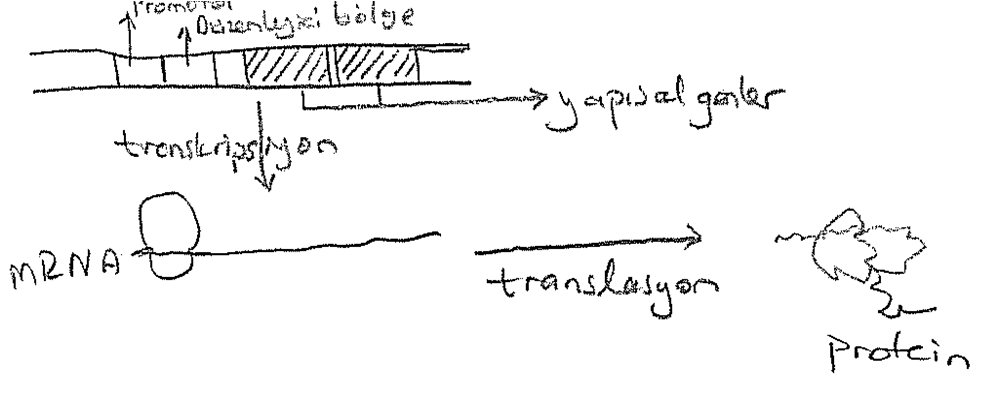 Promotor
Düzenleyici bölge
yapısal genler
transkripsiyon
mRNA
translasyon
protein